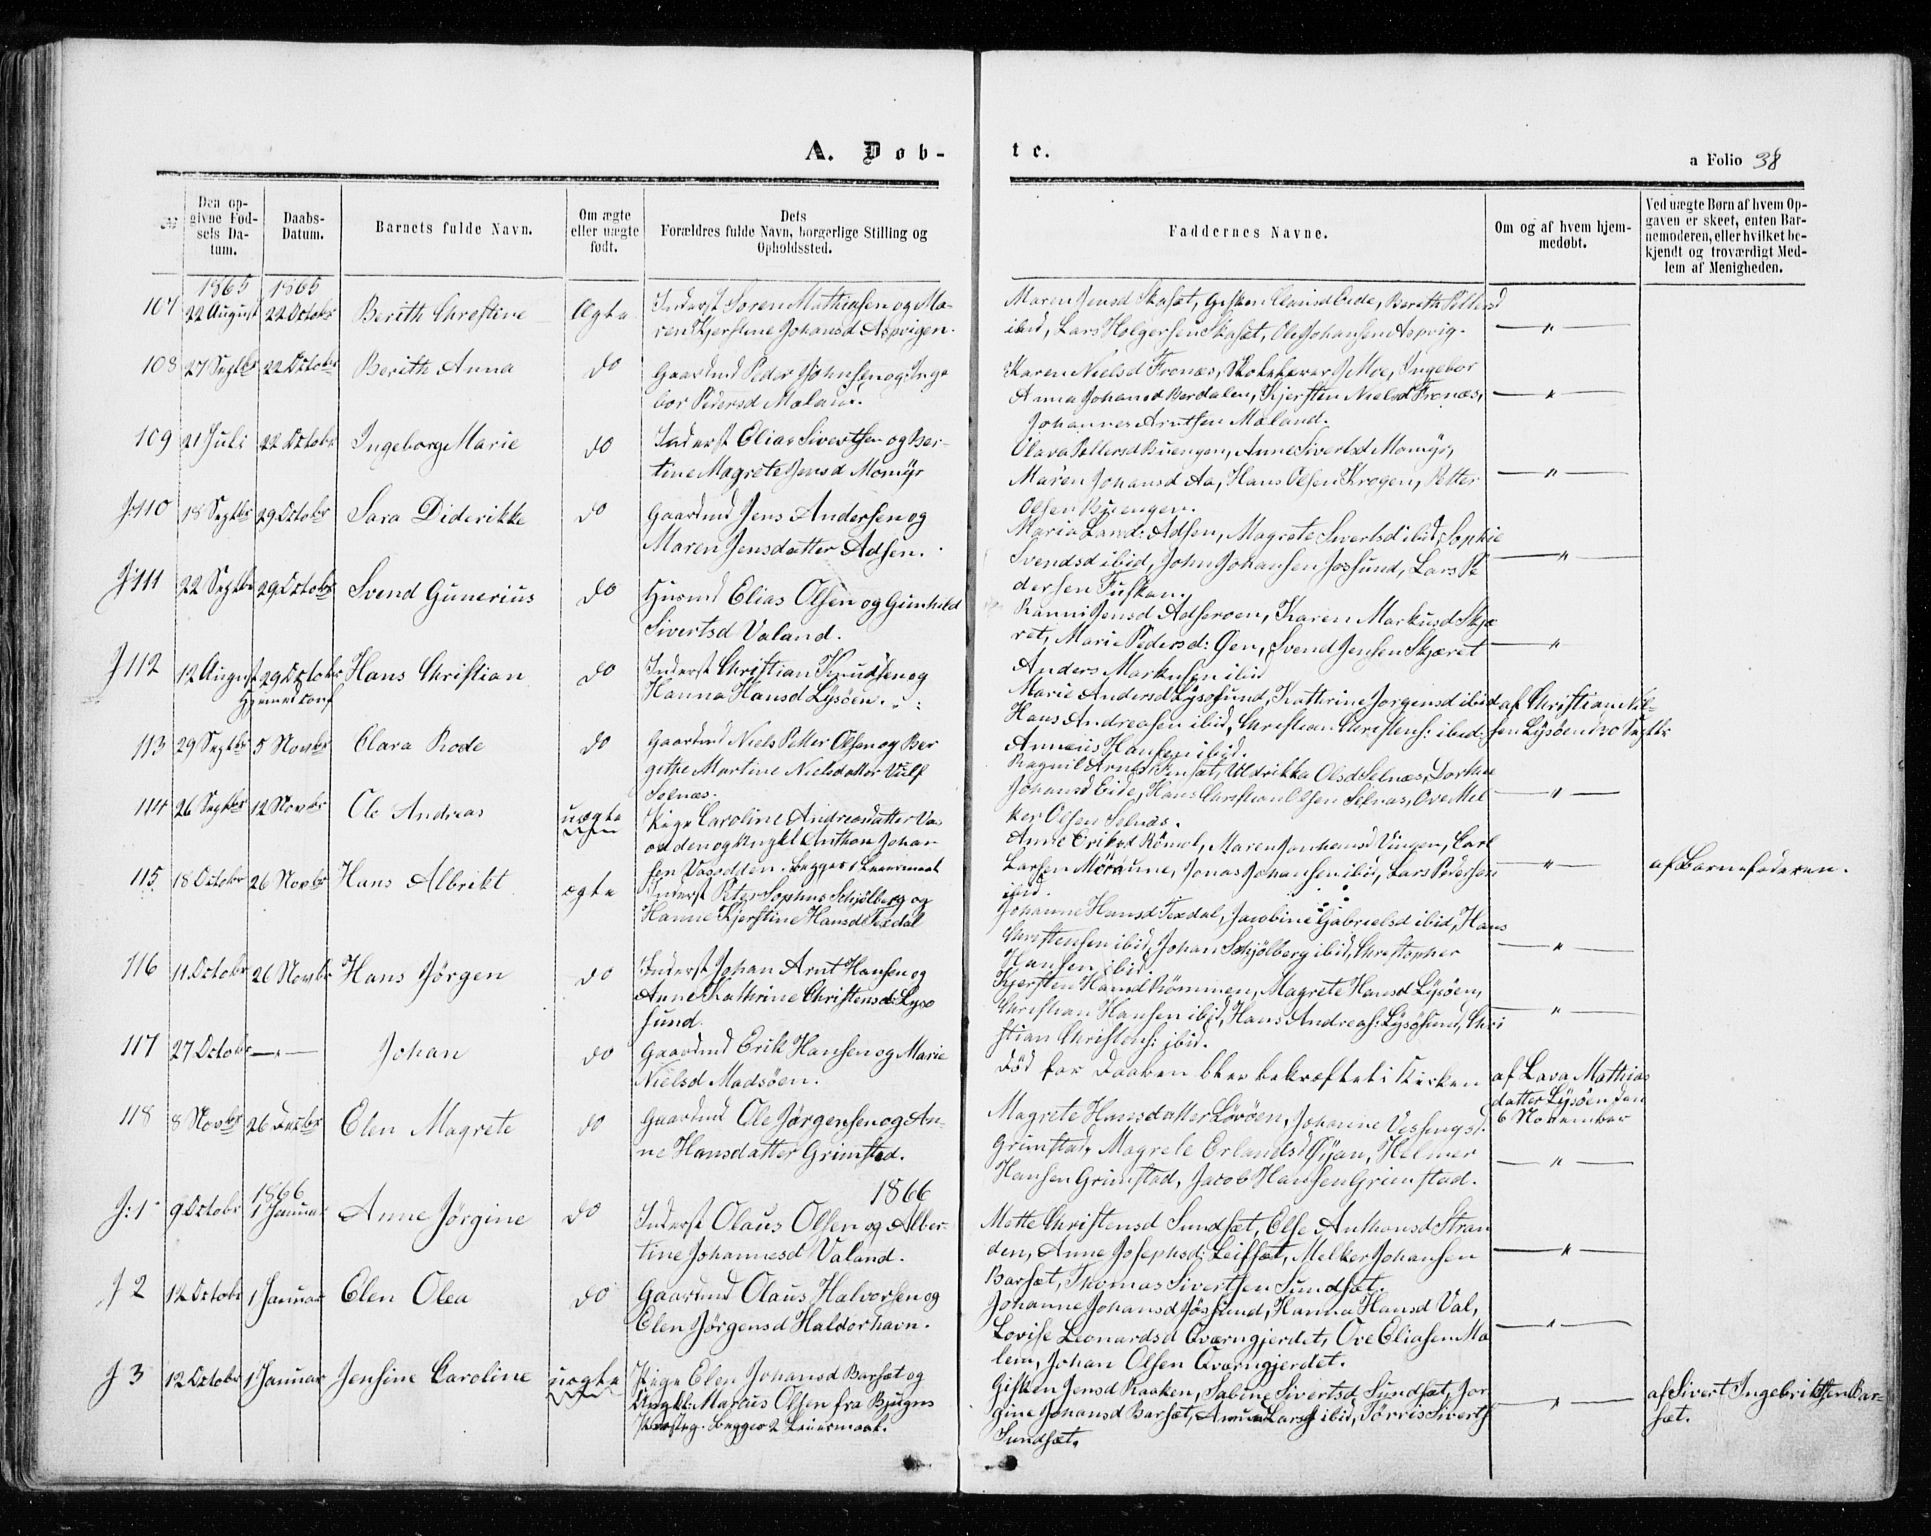 A. Døb-
te.
a Folio 38
№
Den op-
givne Fød-
sels Da-
tum.
Daabs-
Datum.
Barnets fulde Navn.
Om ægte
eller uægte
født.
Dets
Forældres fulde Navn, borgerlige Stilling og
Opholdssted.
Faddernes Navne.
Om og af hvem hjem-
medøbt.
Ved uægte Børn af hvem Op-
gaven er skeet, enten Bar-
nemoderen, eller hvilket be-
kjendt og troværdigt Med-
lem af Menigheden.
1865 1865
107 22 August 22 Octobr Berith Christine Ægte Inderst Søren Mathiasen og Ma-
ren Kjerstine Johansd Aspvigen.
Maren Jensd Skaset, Gisken Clausd Eide, Berith Pettersd
ibid, Lars Holgersen Skaset, Ole Johansen Aspvig. — " —
108 27 Septbr 22 Octobr Berith Anna do Gaardmd Peder Johnsen og Inge
bor Pedersd Malan.
Karen Nielsd Fronæs, J. Moe, Ingebor
Anna Johansd Berdalen, Kjersten Nielsd Fronæs, — " —
Johannes Arntsen Maland.
109 21 Juli 22 Octobr Ingeborg Marie do Inderst Elias Sivertsen og Ber-
tine Magrete Jensd Momyr
Olava Pettersd Buengen, Anne Sivertsd Momyr,
Maren Johansd Aa, Hans Olsen Krogen, Petter — " —
Olsen Buengen.
J.110 18 Septbr 29 Octobr Sara Diderikke do Gaardmd Jens Andersen og
Maren Jensdatter Adsen.
Maria Land: Adsen, Magrete Sivertsd ibid, Sophie
Svendsd ibid, John Johansen Jossund, Lars Pe — " —
dersen Fuskan.
J.111 22 Septbr 29 Octobr Svend Gunerius do Husmd Elias Olsen og Gunhild
Sivertsd Valand.
Ranni Jensd Adseroen, Karen Markusd Skjæ
ret, Marie Pedersd: Øen, Svend Jensen Skjæret — " —
Anders Markusen ibid
J112 12 August 29 Octobr Hans Christian do Inderst Christian Knudsen og
Hjemedconf Hanna Hansd Lysøen.
Marie Andersd Lysøsund, Kathrine Jorgensd ibid af Christian Nil-
Hans Andreasen ibid, Christian Christens: ibid: sen Lysøen d 20 Septbr
Anneus Hansen ibid.
113 29 Septbr 5 Novbr Clara Rode do Gaardmd Niels Petter Olsen og Ber
gethe Martine Nielsdatter Vulf
Selnæs.
Ragnil Arntsd Finsæt, Uldrikka Olsd Selnæs, Dorthea
Johansd Eide, Hans Christian Olsen Selnæs, Ove Mel — " —
ker Olsen Selnæs.
114 26 Septbr 12 Novbr Ole Andreas uægte Pige Caroline Andreasdatter Va
ardden og Ungkl Anthon Johan
sen Vasødden. begges 1 Leiermaal
Anne Eriksd Römol, Maren Johansd Vingen, Carl
Larsen Möraune, Jonas Johansen ibid, Lars Pedersen — " — af Barnefaderen.
ibid.
115 18 Octobr 26 Novbr Hans Albrikt ægte Inderst Peter Sophus Schjølberg og
Hanne Kjerstine Hansd Texdal
Johanne Hansd Texdal, Jacobine Gabrielsd ibid, Hans
Christensen ibid, Johan Schjølberg ibid, Christopher — " —
Hansen ibid.
116 11 Octobr 26 Novbr Hans Jørgen do Inderst Johan Arnt Hansen og
Anne Kathrine Christensd: Lyso
sund.
Kjersten Hansd Römmen, Magrete Hansd Lysøen,
Christian Hansen ibid, Hans Andreas: Lysøsund, Chri — " —
stian Christens: ibid.
117 27 Octobr — " — Johan do Gaardmd Erik Hansen og Marie
Nielsd Madsøen.
død før Daaben blev bekræftet i Kirken af Lava Mathias
datter Lysøen den
6 November
118 8 Novbr 26 Decbr Elen Magrete do Gaardmd Ole Jørgensen og An-
ne Hansdatter Grimstad.
Magrete Hansdatter Lövöen, Johanne Vessingsd.
Grimstad, Magrele Erlandsd Øyan, Helmer — " —
Hansen Grimstad, Jacob Hansen Grimstad.
1866
1866
J:1 9 Octobr 1 Januar Anne Jørgine do Inderst Olaus Olsen og Alber-
tine Johannesd Valand.
Mette Christensd Sundsæt, Else Anthonsd Stran
den, Anne Josephsd: Leifsæt, Melker Johansen — " —
Barsæt, Thomas Sivertsen Sundsæt.
J 2 12 Octobr 1 Januar Elen Olea do Gaardmd Olaus Halvorsen og
Elen Jørgensd Haldorhavn.
Johanne Johansd Jössund, Hanna Hansd Val,
Lovise Leonardsd Qværngjerdet, Ove Eliasen Ma — " —
lem, Johan Olsen Qværngjerdet.
J 3 12 Octobr 1 Januar Jensine Caroline uægte Pige Elen Johansd Barsæt og
Ungkl: Marcus Olsen fra Bjugns
Præsteg. begges 2 Leiermaal.
Gisken Jensd Raaken, Sabine Sivertsd Sundsæt, Jor
gine Johansd Barsæt, Arnt Larss ibid, Törris Siverts — " — af Sivert Ingebriktsen Bar-
Sundsæt. sæt.